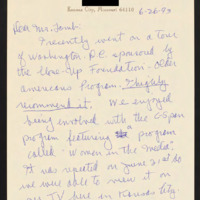 Kansas City, Missouri 64118
6-26-93
Dear Mr. Lamb:
Recently went on a tour
of Washington, D.C. sponsored by
the Close-Up Foundation - older
americans Program. I highly
recommend it. We enjoyed
being involved with the CSpan
program featuring a program
called "Women in the Media".
It was repeated on June 21st so
we were able to view it on
our TV here in Kansas City